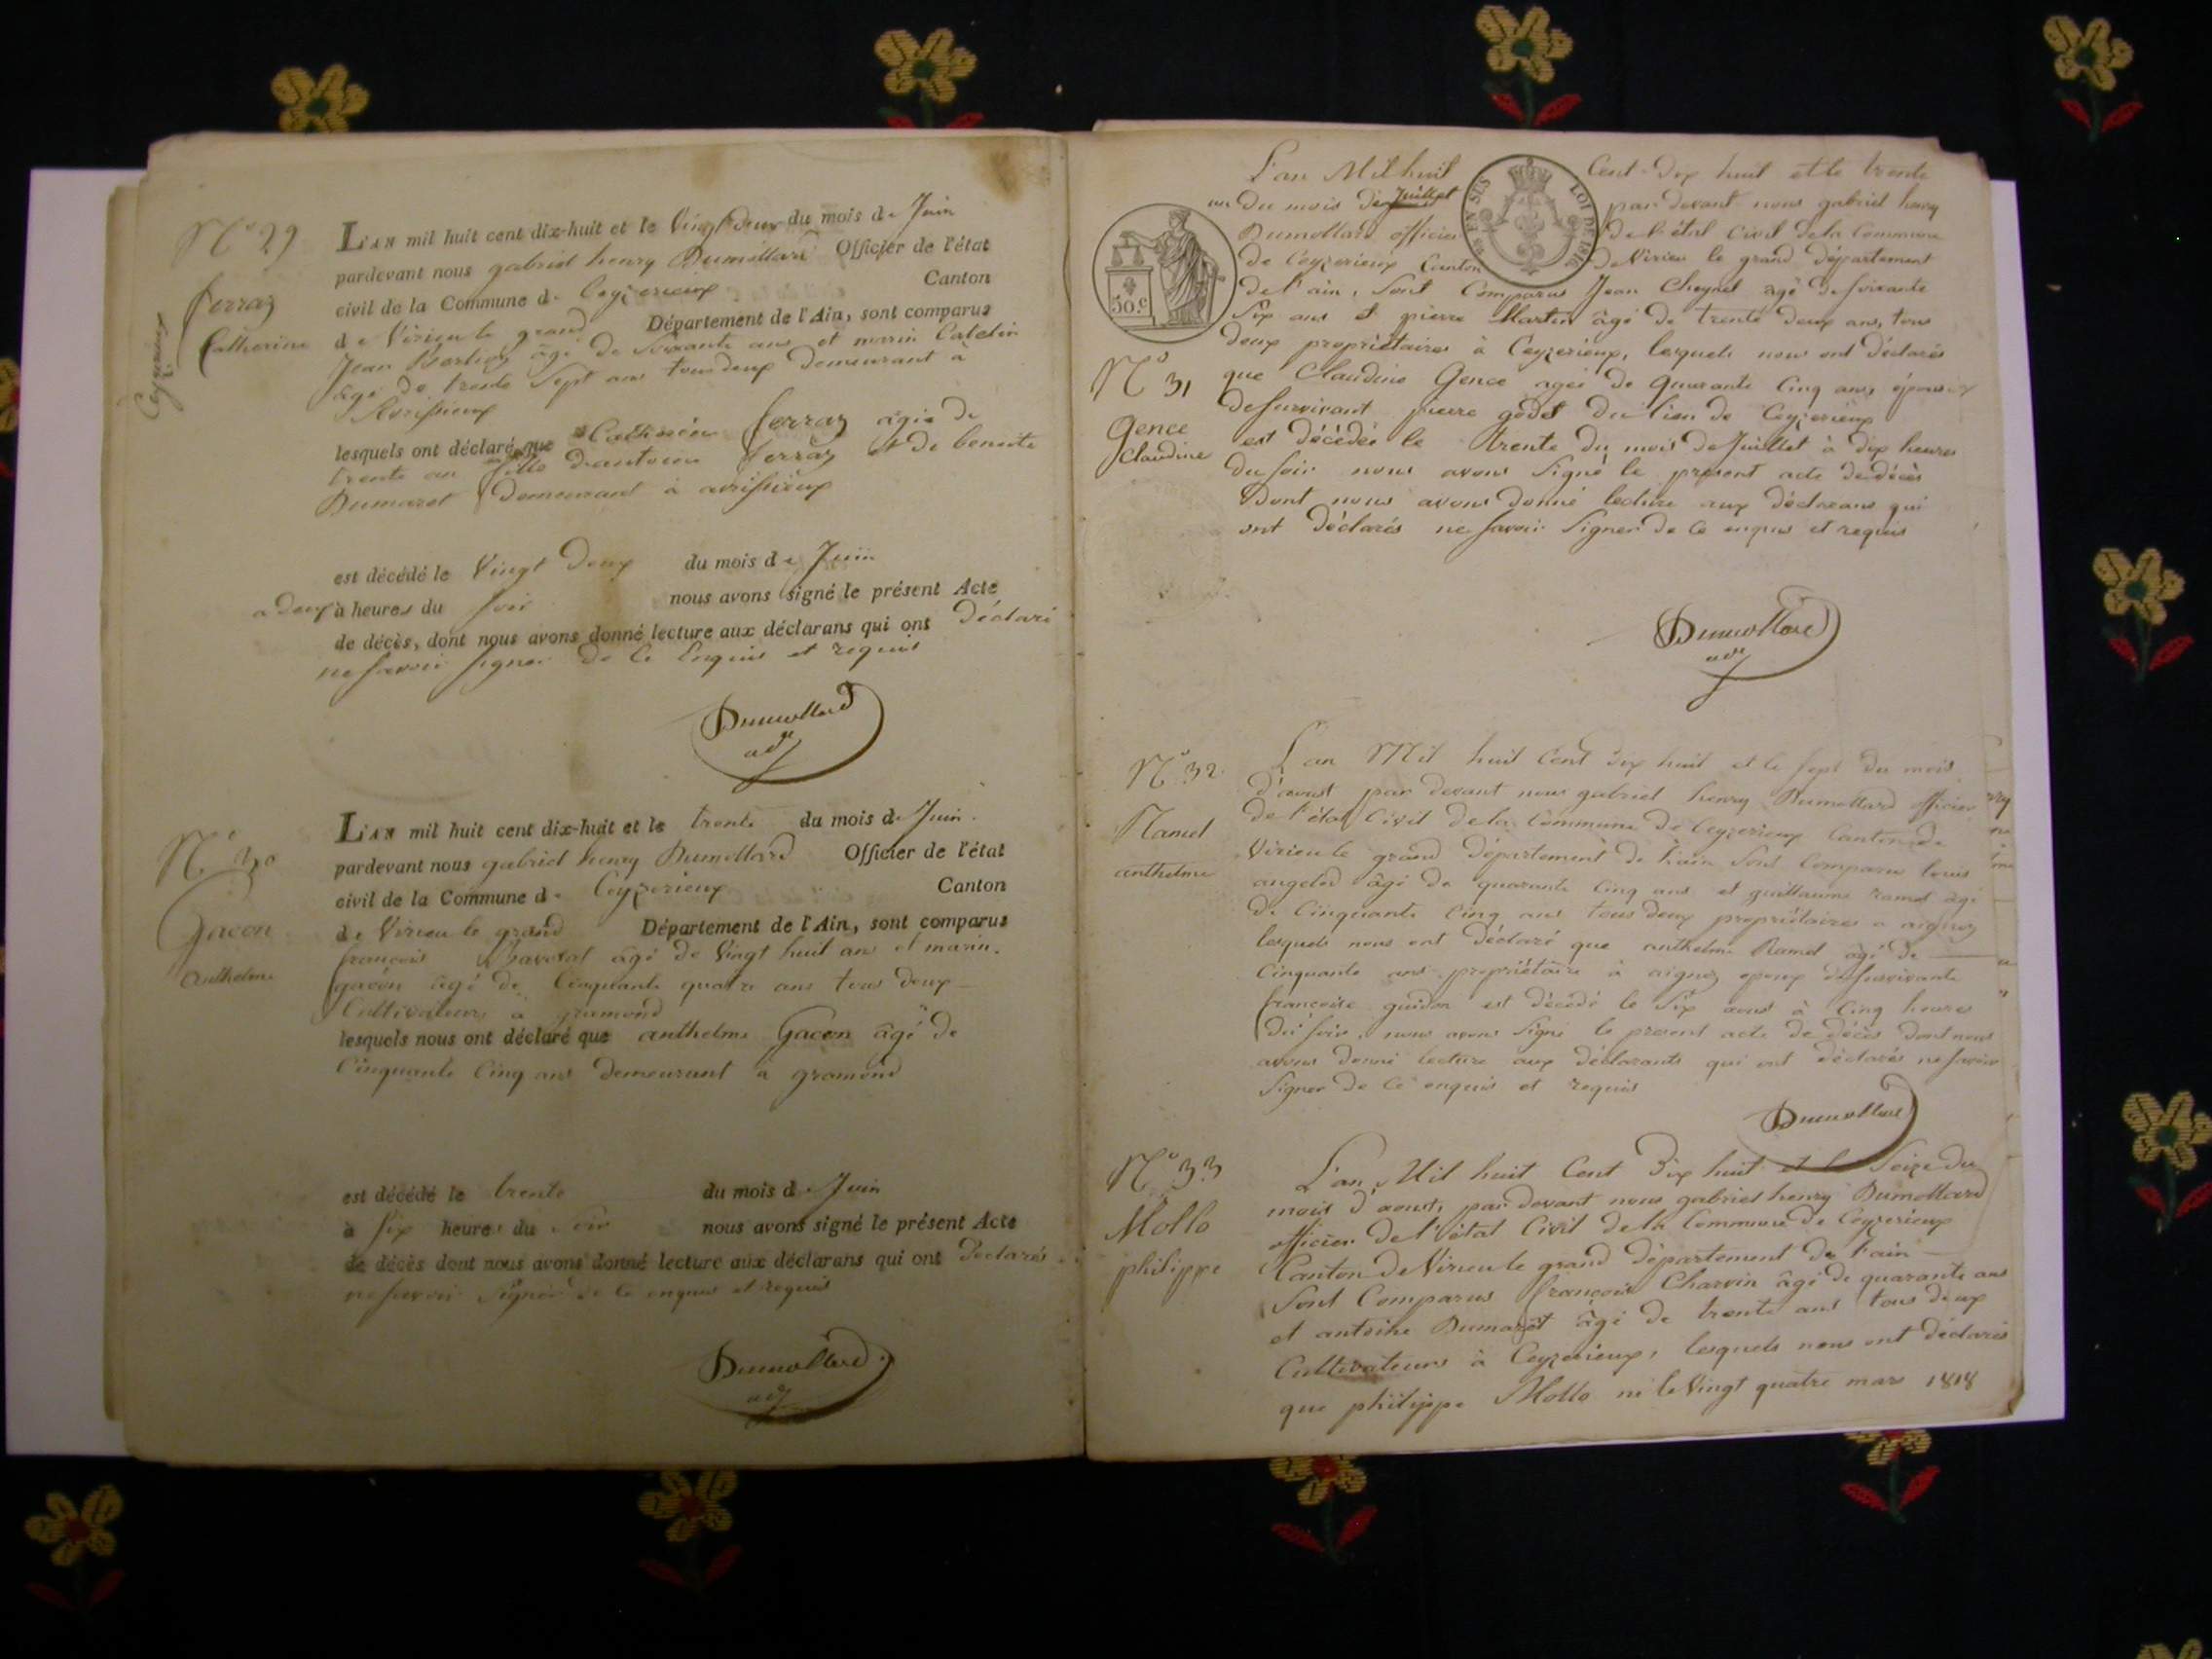 N° 29
Ferraz
Catherine
Ceyzerieux
L'AN mil huit cent dix-huit et le Vingt deux du mois de Juin
pardevant nous gabriel henry Dumollard Officier de l'état
civil de la Commune de Ceyzerieux Canton
de Virieu le grand Département de l'Ain, sont comparus
Jean âgé de Soixante ans et marin Catelin
âgé de trente Sept ans tous deux demeurant à
Avrissieux
lesquels ont déclaré que Catherine ferraz âgée de
trente an fille d'antoine ferraz et de benoite
Dumaret demeurant à avrissieux
est décédé le Vingt Deux du mois de Juin
a deux à heures du Soir nous avons signé le présent Acte
de décès, dont nous avons donné lecture aux déclarans qui ont Déclaré
ne Savoir Signer de Ce Enquis et requis
Dumollard
adj
N° 30
Gacon
anthelme
L'AN mil huit cent dix-huit et le trente du mois de Juin
pardevant nous gabriel henry Dumollard Officier de l'état
civil de la Commune de Ceyzerieux Canton
de Virieu le grand Département de l'Ain, sont comparus
françois âgé de Vingt huit ans et marin
gacon âgé de Cinquante quatre ans tous deux
Cultivateurs a gramond
lesquels nous ont déclaré que anthelme Gacon âgé de
Cinquante Cinq ans demeurant a gramond
est décédé le trente du mois de Juin
à Six heures du Soir nous avons signé le présent Acte
de décès dont nous avons donné lecture aux déclarans qui ont Déclarés
ne Savoir Signer de Ce enquis et requis
Dumollard
adj
L'an Mil huit Cent Dix huit et le trente
un du mois de Juillet par devant nous gabriel henry
Dumollard officier de l'état Civil de la Commune
de Ceyzerieux Canton de Virieu le grand Département
EN SUS LOI DE 1816
50.c
de l'ain, Sont Comparus Jean Cheynel âgé de Soixante
Six ans et pierre Martin âgé de trente deux ans, tous
deux propriétaires à Ceyzerieux, lesquels nous ont déclarés
N° 31
Gence
Claudine
que Claudine Gence agée de quarante Cinq ans, épouse
de Survivant pierre godet du lieu de Ceyzerieux
est décédée le trente du mois de Juillet à dix heures
du Soir nous avons Signé le présent acte de décès
Dont nous avons donné lecture aux déclarans qui
ont Déclarés ne Savoir Signer de Ce enquis et requis
Dumollard
adj
N° 32
Ramel
anthelme
L'an Mil huit Cent Dix huit et le Sept du mois
d'aoust par devant nous gabriel henry Dumollard officier
de l'état Civil de la Commune de Ceyzerieux Canton de
Virieu le grand Département de l'ain Sont Comparus louis
angelod âgé de quarante Cinq ans et guillaume ramel âgé
de Cinquante Cinq ans tous deux propriétaires a aignoz
lesquels nous ont Déclaré que anthelme Ramel âgé de
Cinquante ans propriétaire à aignoz epoux de Survivante
françoise guidon est décédé le Six aoust à Cinq heures
du Soir, nous avons Signé le present acte de décès dont nous
avons donné lecture aux déclarants qui ont déclarés ne Savoir
Signer de Ce enquis et requis
Dumollard
N° 33
Mollo
philippe
L'an Mil huit Cent Dix huit et le Seize du
mois d'aoust, par devant nous gabriel henry Dumollard
officier de l'état Civil de la Commune de Ceyzerieux
Canton de Virieu le grand département de l'ain
Sont Comparus françois Charvin âgé de quarante ans
et antoine Dumaret âgé de trente ans tous deux
Cultivateurs à Ceyzerieux, lesquels nous ont déclarés
que philippe Mollo né le Vingt quatre mars 1818